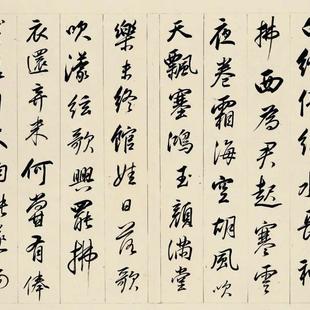 水長
拂面為君起寒雲
夜卷霜海空胡風吹
天飄塞鴻玉顏滿堂
樂未終館娃日落歌
吹濛絃歌興罷拂
衣還弃來何嘗有俸